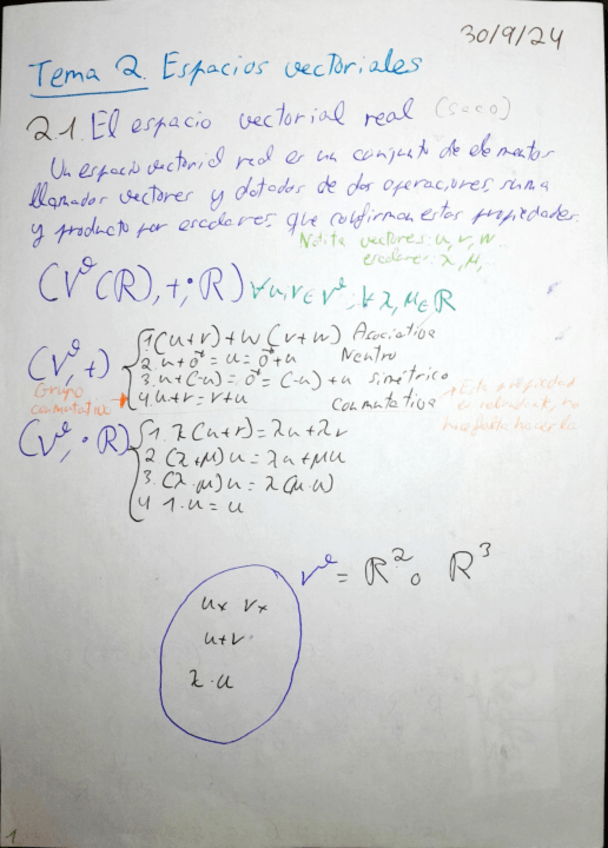 30/9/24
Tema 2. Espacios vectoriales
2.1. El espacio vectorial real (soco)
Un espacio vectorial real es un conjunto de elementos
llamados vectores y dotados de dos operaciones, suma
y producto por escalares, que confirman estas propiedades.
Notita vectores: u, v, w..
escalares: λ, μ,
(Vᵉ(ℝ), +; ·ℝ) ∀u,v ∈ Vᵉ; ∀ λ, μ ∈ ℝ
(Vᵉ, +)
1. (u+v)+w (v+w) Asociativa
2. u+0⃗ = u = 0⃗+u Neutro
3. u+(-u) = 0⃗ = (-u)+u simétrico
4. u+v = v+u Conmutativa
Grupo
conmutativo
Esta propiedad
es redundante, no
hace falta hacerla
(Vᵉ, ·ℝ)
1. λ(u+v) = λu+λv
2 (λ+μ)u = λu+μu
3. (λ·μ)u = λ(μ·u)
4 1·u = u
Vᵉ = ℝ² o ℝ³
ux vx
u+v·
λ·u
1